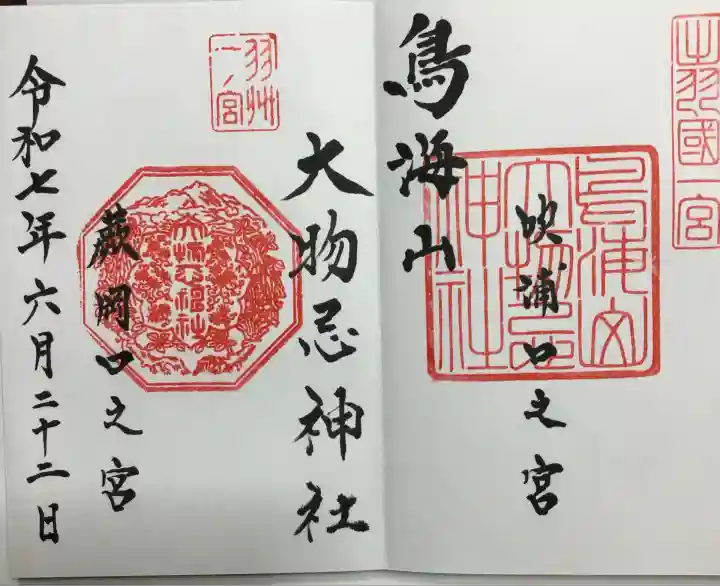 出羽國一宮
鳥海山
大物忌
神社
吹浦口之宮
鳥海山
大物忌神社
羽州
一ノ宮
蕨岡口之宮
令和七年六月二十二日